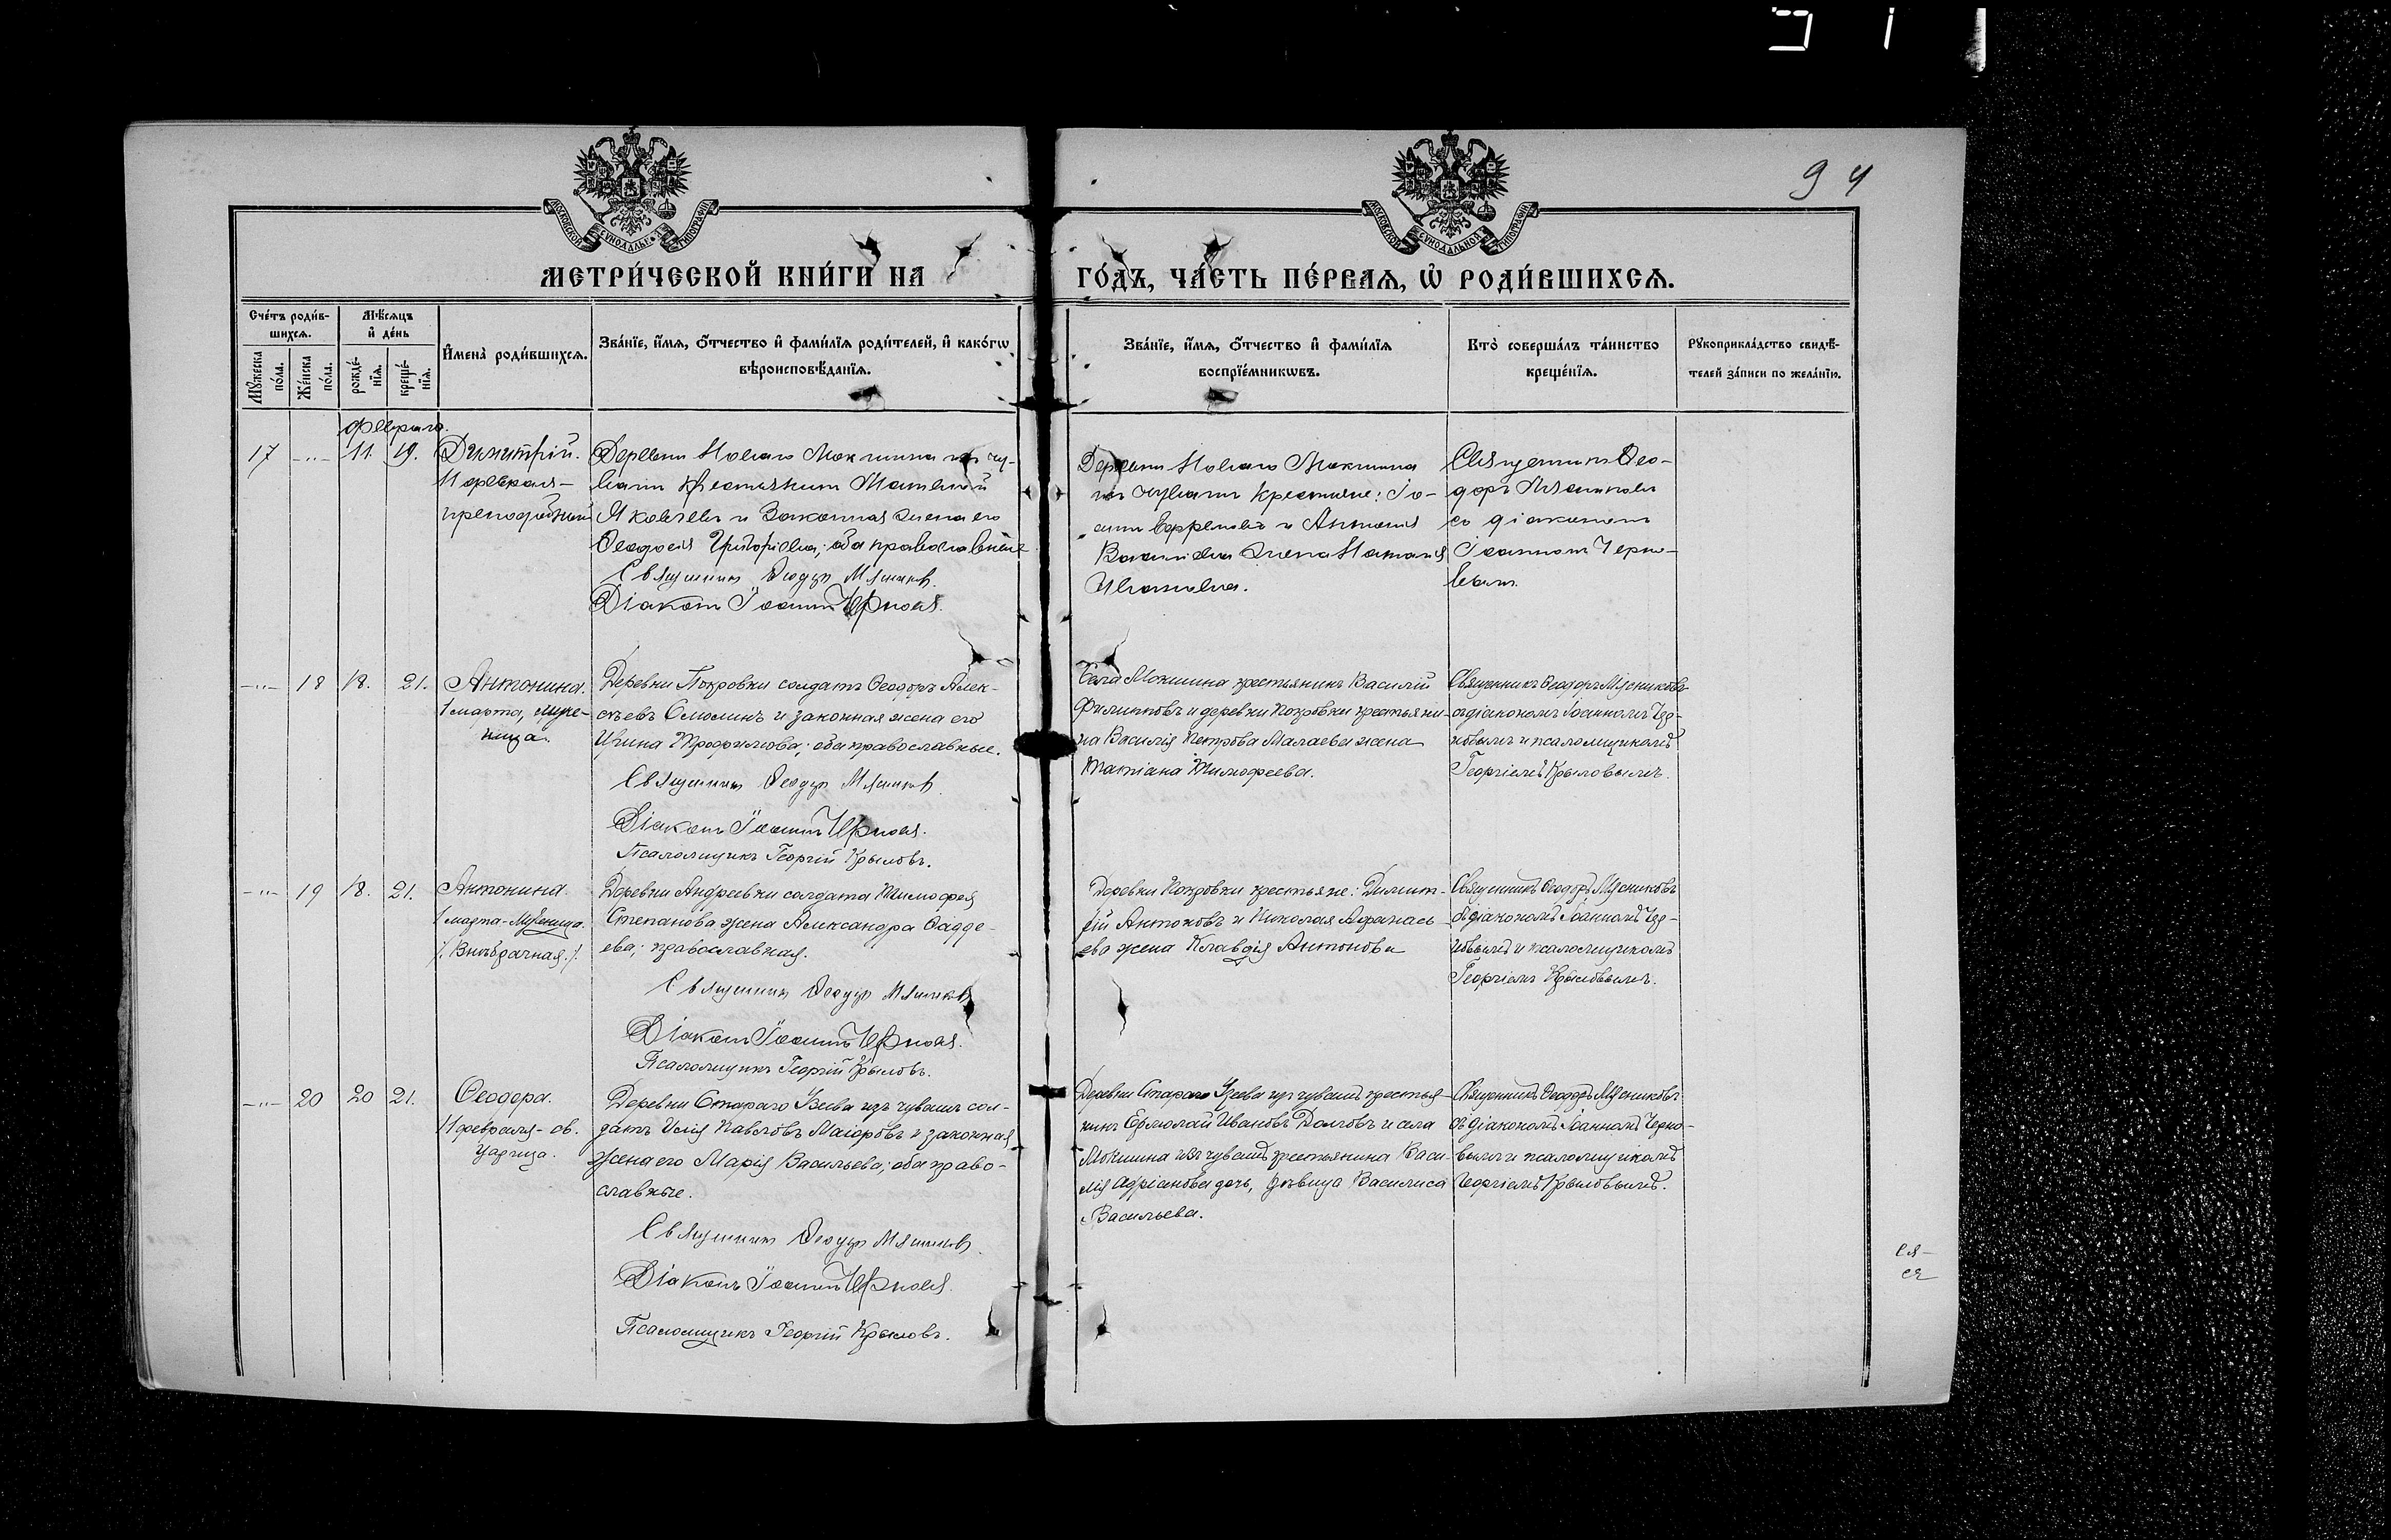 94
МОСКОВСКОЙ СѴНОДАЛЬНОЙ ТИПОГРАФІИ
МОСКОВСКОЙ СѴНОДАЛЬНОЙ ТИПОГРАФІИ
МЕТРИ́ЧЕСКОЙ КНИ́ГИ НА ГО́ДЪ, ЧА́СТЬ ПЕ́РВАѦ, Ѡ҆ РОДИ́ВШИХСѦ.
Сче́тъ роди́в-
шихсѧ.
Мѣ́сѧцъ
и҆ де́нь
Мꙋ́жеска по́ла.
Же́нска по́ла.
рожде́-
нїѧ.
креще́-
нїѧ.
И҆мена̀ роди́вшихсѧ.
Зва́нїе, и҆́мѧ, ѻ҆́тчество и҆ фами́лїѧ роди́телей, и҆ како́гѡ
вѣроисповѣ́данїѧ.
Зва́нїе, и҆́мѧ, ѻ҆́тчество и҆ фами́лїѧ
воспрїе́мникѡвъ.
Кто̀ соверша́лъ та́инство
креще́нїѧ.
Рꙋкоприкла́дство свидѣ́-
телей за́писи по жела́нїю.
Февраля.
17 -„- 11. 19.
Димитрій.
11 февраля-
преподобный
Деревни Новаго Мокшина изъ чу-
вашъ крестьянинъ Матвей
Яковлевъ и законная жена его
Ѳеодосія Григорьева; оба православные.
Священникъ Ѳеодоръ Мясниковъ.
Діаконъ Іоаннъ Черновъ.
Деревни Новаго Мокшина
изъ чувашъ крестьяне: Іо-
аннъ Ефремовъ и Антонія
Васильева жена Наталія
Иванова.
Священникъ Ѳео-
доръ Мясниковъ
со діакономъ
Іоанномъ Черно-
вымъ.
-„- 18 18. 21.
Антонина.
1 марта, муче-
ница.
Деревни Покровки солдатъ Ѳеодоръ Алек-
сѣевъ Смолинъ и законная жена его
Ирина Трофимова; оба православные.
Священникъ Ѳеодоръ Мясниковъ.
Діаконъ Іоаннъ Черновъ.
Псаломщикъ Георгій Крыловъ.
Села Мокшина крестьянинъ Василій
Филипповъ и деревни Покровки крестьяни-
на Василія Петрова Малаева жена
Татіана Тимофеева.
Священникъ Ѳеодоръ Мясниковъ
съ діакономъ Іоанномъ Чер-
новымъ и псаломщикомъ
Георгіемъ Крыловымъ.
-„- 19 18. 21.
Антонина.
1 марта - Мученица.
/. Внѣбрачная ./.
Деревни Андреевки солдата Тимофея
Степанова жена Александра Ѳадде-
ева; православная.
Священникъ Ѳеодоръ Мясниковъ
Діаконъ Іоаннъ Черновъ.
Псаломщикъ Георгій Крыловъ.
Деревни Покровки крестьяне: Димит-
рій Антоновъ и Николая Афанась-
ева жена Клавдія Антонова
Священникъ Ѳеодоръ Мясниковъ
съ діакономъ Іоанномъ Чер-
новымъ и псаломщикомъ
Георгіемъ Крыловымъ.
-„- 20 20 21.
Ѳеодора.
11 февраля - св.
Царица.
Деревни Стараго Узеева изъ чувашъ сол-
датъ Илія Павловъ Маіоровъ и законная
жена его Марія Васильева; оба право-
славные.
Священникъ Ѳеодоръ Мясниковъ.
Діаконъ Іоаннъ Черновъ.
Псаломщикъ Георгій Крыловъ.
Деревни Стараго Узеева изъ чувашъ крестья-
нинъ Ермолай Ивановъ Долговъ и села
Мокшина изъ чувашъ крестьянина Васи-
лія Адріанова дочь, дѣвица Василиса
Васильева.
Священникъ Ѳеодоръ Мясниковъ
съ діакономъ Іоанномъ Черно-
вымъ и псаломщикомъ
Георгіемъ Крыловымъ.